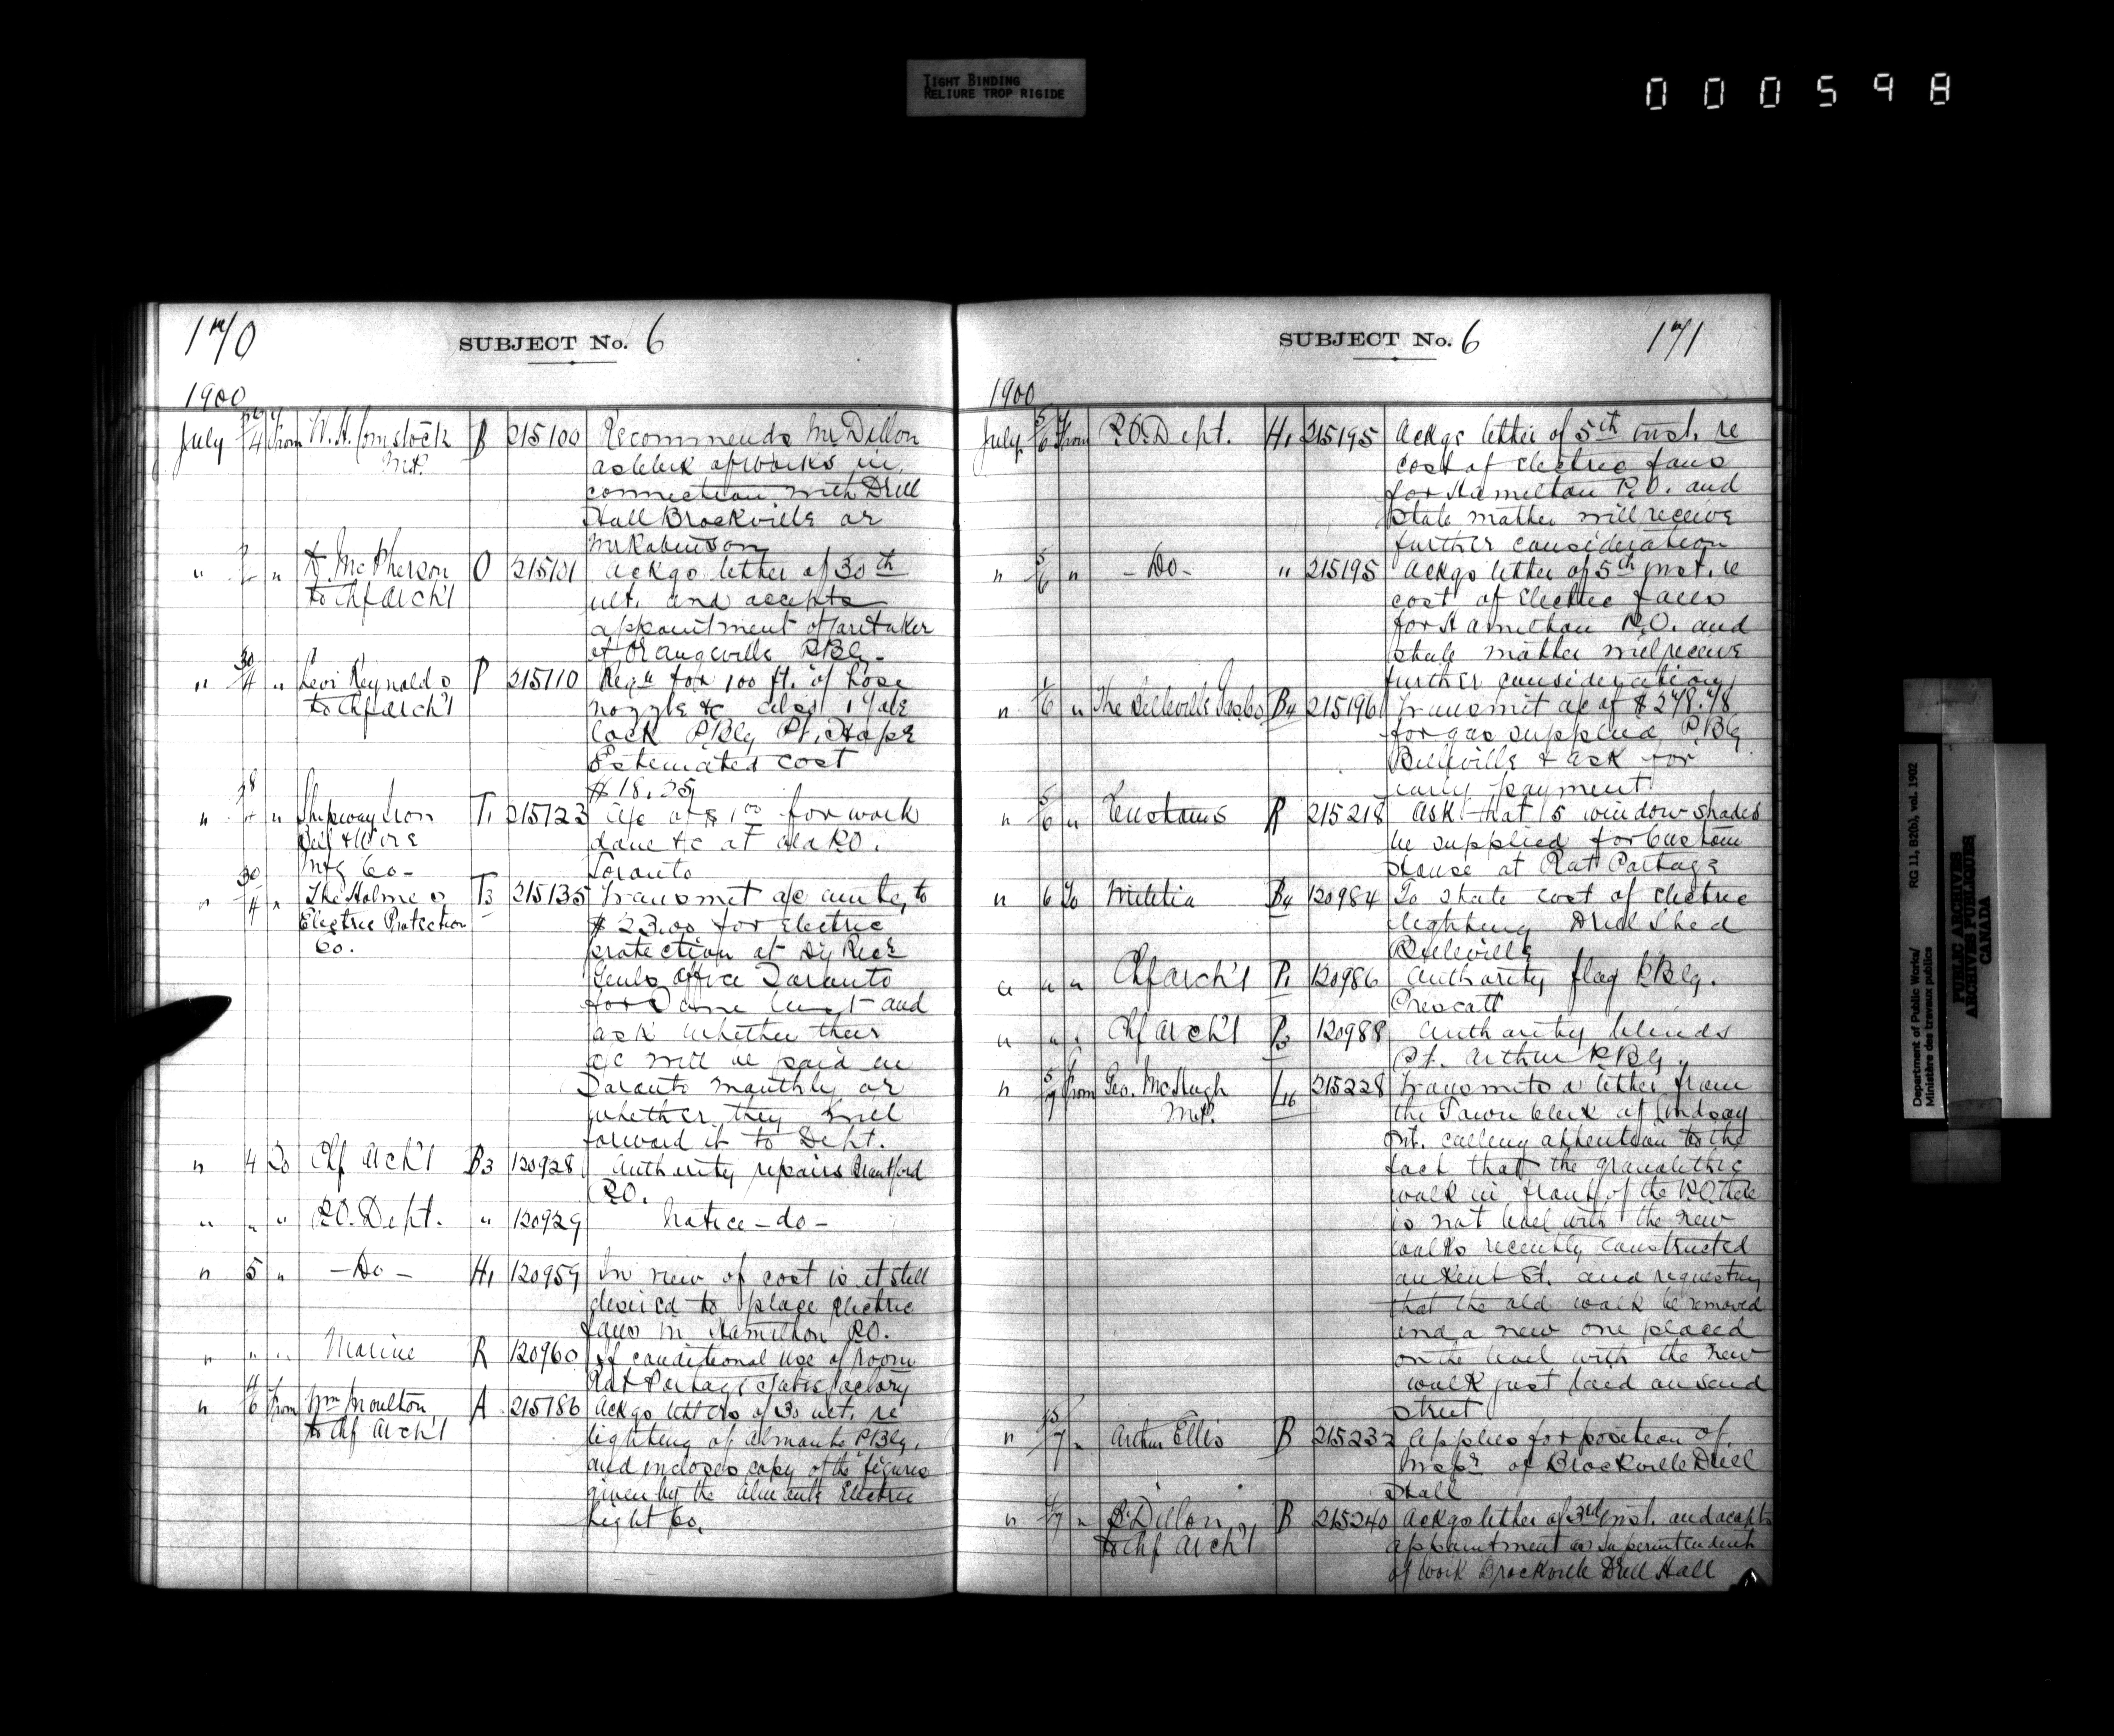 TIGHT BINDING
RELIURE TROP RIGIDE
000598
170
SUBJECT No. 6
1900
July 4 from W. H. Comstock B 215100 Recommends Mr Dillon
M.P. as clerk of works in
connection with Drill
Hall Brockville or
Mr Robinson
" " McPherson O 215101 Ackgs letter of 30th
to Chf Arch't ult. and accepts
appointment of caretaker
of Orangeville P.Bg.
" 30/4 " Levi Reynolds P 215110 Reqn for 100 ft. of hose
to Chf Arch't nozzle &c also 1 Yale
lock P.Bg Pt. Hope
Estimated cost
$18.25
" " Shipway Iron T1 215123 a/c of $1.00 for work
Bell & Wire done &c at P.O.
Mfg Co- Toronto
" 30/4 " The Holmes T3 215135 Transmit a/c amtg to
Electric Protection $23.00 for Electric
Co. protection at Dy Rec'r
Genls Office Toronto
for June and
ask whether their
a/c will be paid in
Toronto monthly or
whether they will
forward it to Dept.
" 4 To Chf Arch't B3 120928 Authority repairs Brantford
P.O.
" " " P.O. Dept. " 120929 Notice -do-
" 5 " -Do- H1 120959 In view of cost is it still
desired to place Electric
fans in Hamilton P.O.
" " " Marine R 120960 If conditional use of room
Rat Portage satisfactory
" 4/6 from Wm Moulton A 215186 Ackgs letters of 30 ult. re
to Chf Arch't lighting of Almonte P.Bg.
and incloses copy of the figures
given by the Almonte Electric
Light Co.
SUBJECT No. 6
171
1900
July 5/6 from P.O. Dept. H1 215195 Ackgs letter of 5th inst. re
cost of Electric fans
for Hamilton P.O. and
state matter will receive
further consideration
" 5/6 " -Do- " 215195 Ackgs letter of 5th inst. re
cost of Electric fans
for Hamilton P.O. and
state matter will receive
further consideration
" /6 " The Belleville Gas Co B4 215196 Transmit a/c of $278.78
for gas supplied P.Bg
Belleville & ask for
early payment
" 5/6 " Customs R 215218 Ask that 5 window shades
be supplied for Custom
House at Rat Portage
" 6 To Militia B4 120984 To state cost of Electric
lighting Drill Shed
Belleville
" " " Chf Arch't P1 120986 Authority flag P.Bg.
Prescott
" " " Chf Arch't P3 120988 Authority blinds
Pt. Arthur P.Bg.
" 5/7 from Geo. McHugh L16 215228 Transmits a letter from
M.P. the Town Clerk of Lindsay
Ont. calling attention to the
fact that the granolithic
walk in front of the P.O. there
is not level with the new
walks recently constructed
on Kent St. and requesting
that the old walk be removed
and a new one placed
on the level with the new
walk just laid on said
street
" 5/7 " Arthur Ellis B 215232 Applies for position of
Inspr of Brockville Drill
Hall
" /7 " Dillon B 215240 Ackgs letter of 3rd inst. and accepts
to Chf Arch't appointment as superintendent
of work Brockville Drill Hall
Department of Public Works/
Ministère des travaux publics
RG 11, B2(b), vol. 1902
PUBLIC ARCHIVES
ARCHIVES PUBLIQUES
CANADA